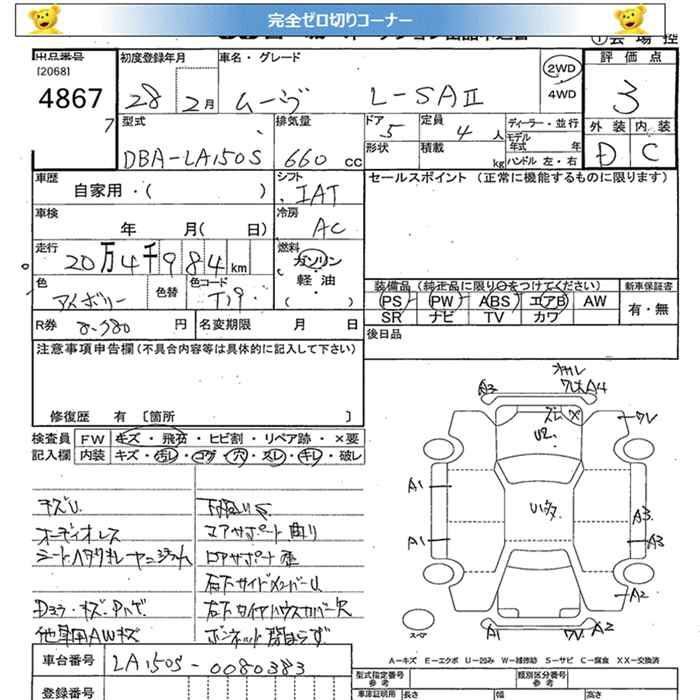 完全ゼロ切りコーナー
出品番号
[2068]
4867
7
初度登録年月
28 2月
車名・グレード
ムーヴ L-SAⅡ
2WD
4WD
評価点
3
外装 内装
D C
型式
DBA-LA150S
排気量
660 cc
ドア
5
定員
4 人
形状
積載
kg
ディーラー・並行
モデル
年式 年
ハンドル 左・右
車歴
自家用・( )
シフト
IAT
車検
年 月( 日)
冷房
AC
走行
20万4千984km
燃料
ガソリン
軽油
( )
色
アイボリー
色替
色コード
T19
R券
8.380 円
名変期限 月 日
セールスポイント (正常に機能するものに限ります)
装備品 (純正品に限り○をつけてください)
PS PW ABS エアB AW
SR ナビ TV カワ
新車保証書
有・無
後日品
注意事項申告欄(不具合内容等は具体的に記入して下さい)
修復歴 有 [箇所 ]
検査員
記入欄
FW キズ・飛石・ヒビ割・リペア跡・×要
内装 キズ・汚レ・コゲ・穴・スレ・キレ・破レ
キズU
オーディオレス
コアサポート曲り
コアサポート歪
右下サイドメンバーU
右下タイヤハウスカバー欠
他車用AWキズ
ボンネット閉まらず
A3
A4
ズレ
X
U2
ワレ
A1
A1
A3
A3
A2
A1
A2
スペア
A―キズ E―エクボ U―凹み W―補修跡 S―サビ C―腐食 XX―交換済
車台番号
LA150S-0080383
登録番号
型式指定番号
参考
類別区分番号
参考
車庫証明用
長さ
幅
高さ